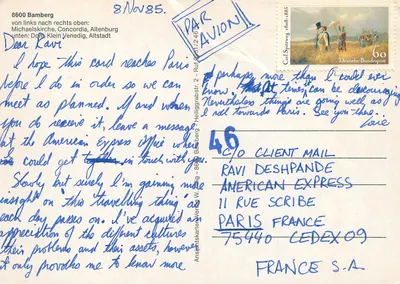 8600 Bamberg
von links nach rechts oben:
Michaelskirche, Concordia, Altenburg
unten: Dom, Klein Venedig, Altstadt
8 Nov 85.
PAR AVION
Carl Spitzweg 1808-1885
60
Deutsche Bundespost
Dear Ravi
I hope this card reaches Paris
before I do in order so we can
meet as planned. If and when
you do receive it, leave a message
at the American Express office where
I could get in touch with you.
Slowly but surely I'm gaining more
insight on this travelling thing as
each day passes on. I've acquired an
appreciation of the different cultures
their problems and their assets, however
it only provoke me to know more
& perhaps more than I could ever
know. times can be discouraging
Nevertheless things are going well as
I nod towards Paris. See you there.
46
C/O CLIENT MAIL
RAVI DESHPANDE
AMERICAN EXPRESS
11 RUE SCRIBE
PARIS FRANCE
75440 CEDEX 09
FRANCE S.A.